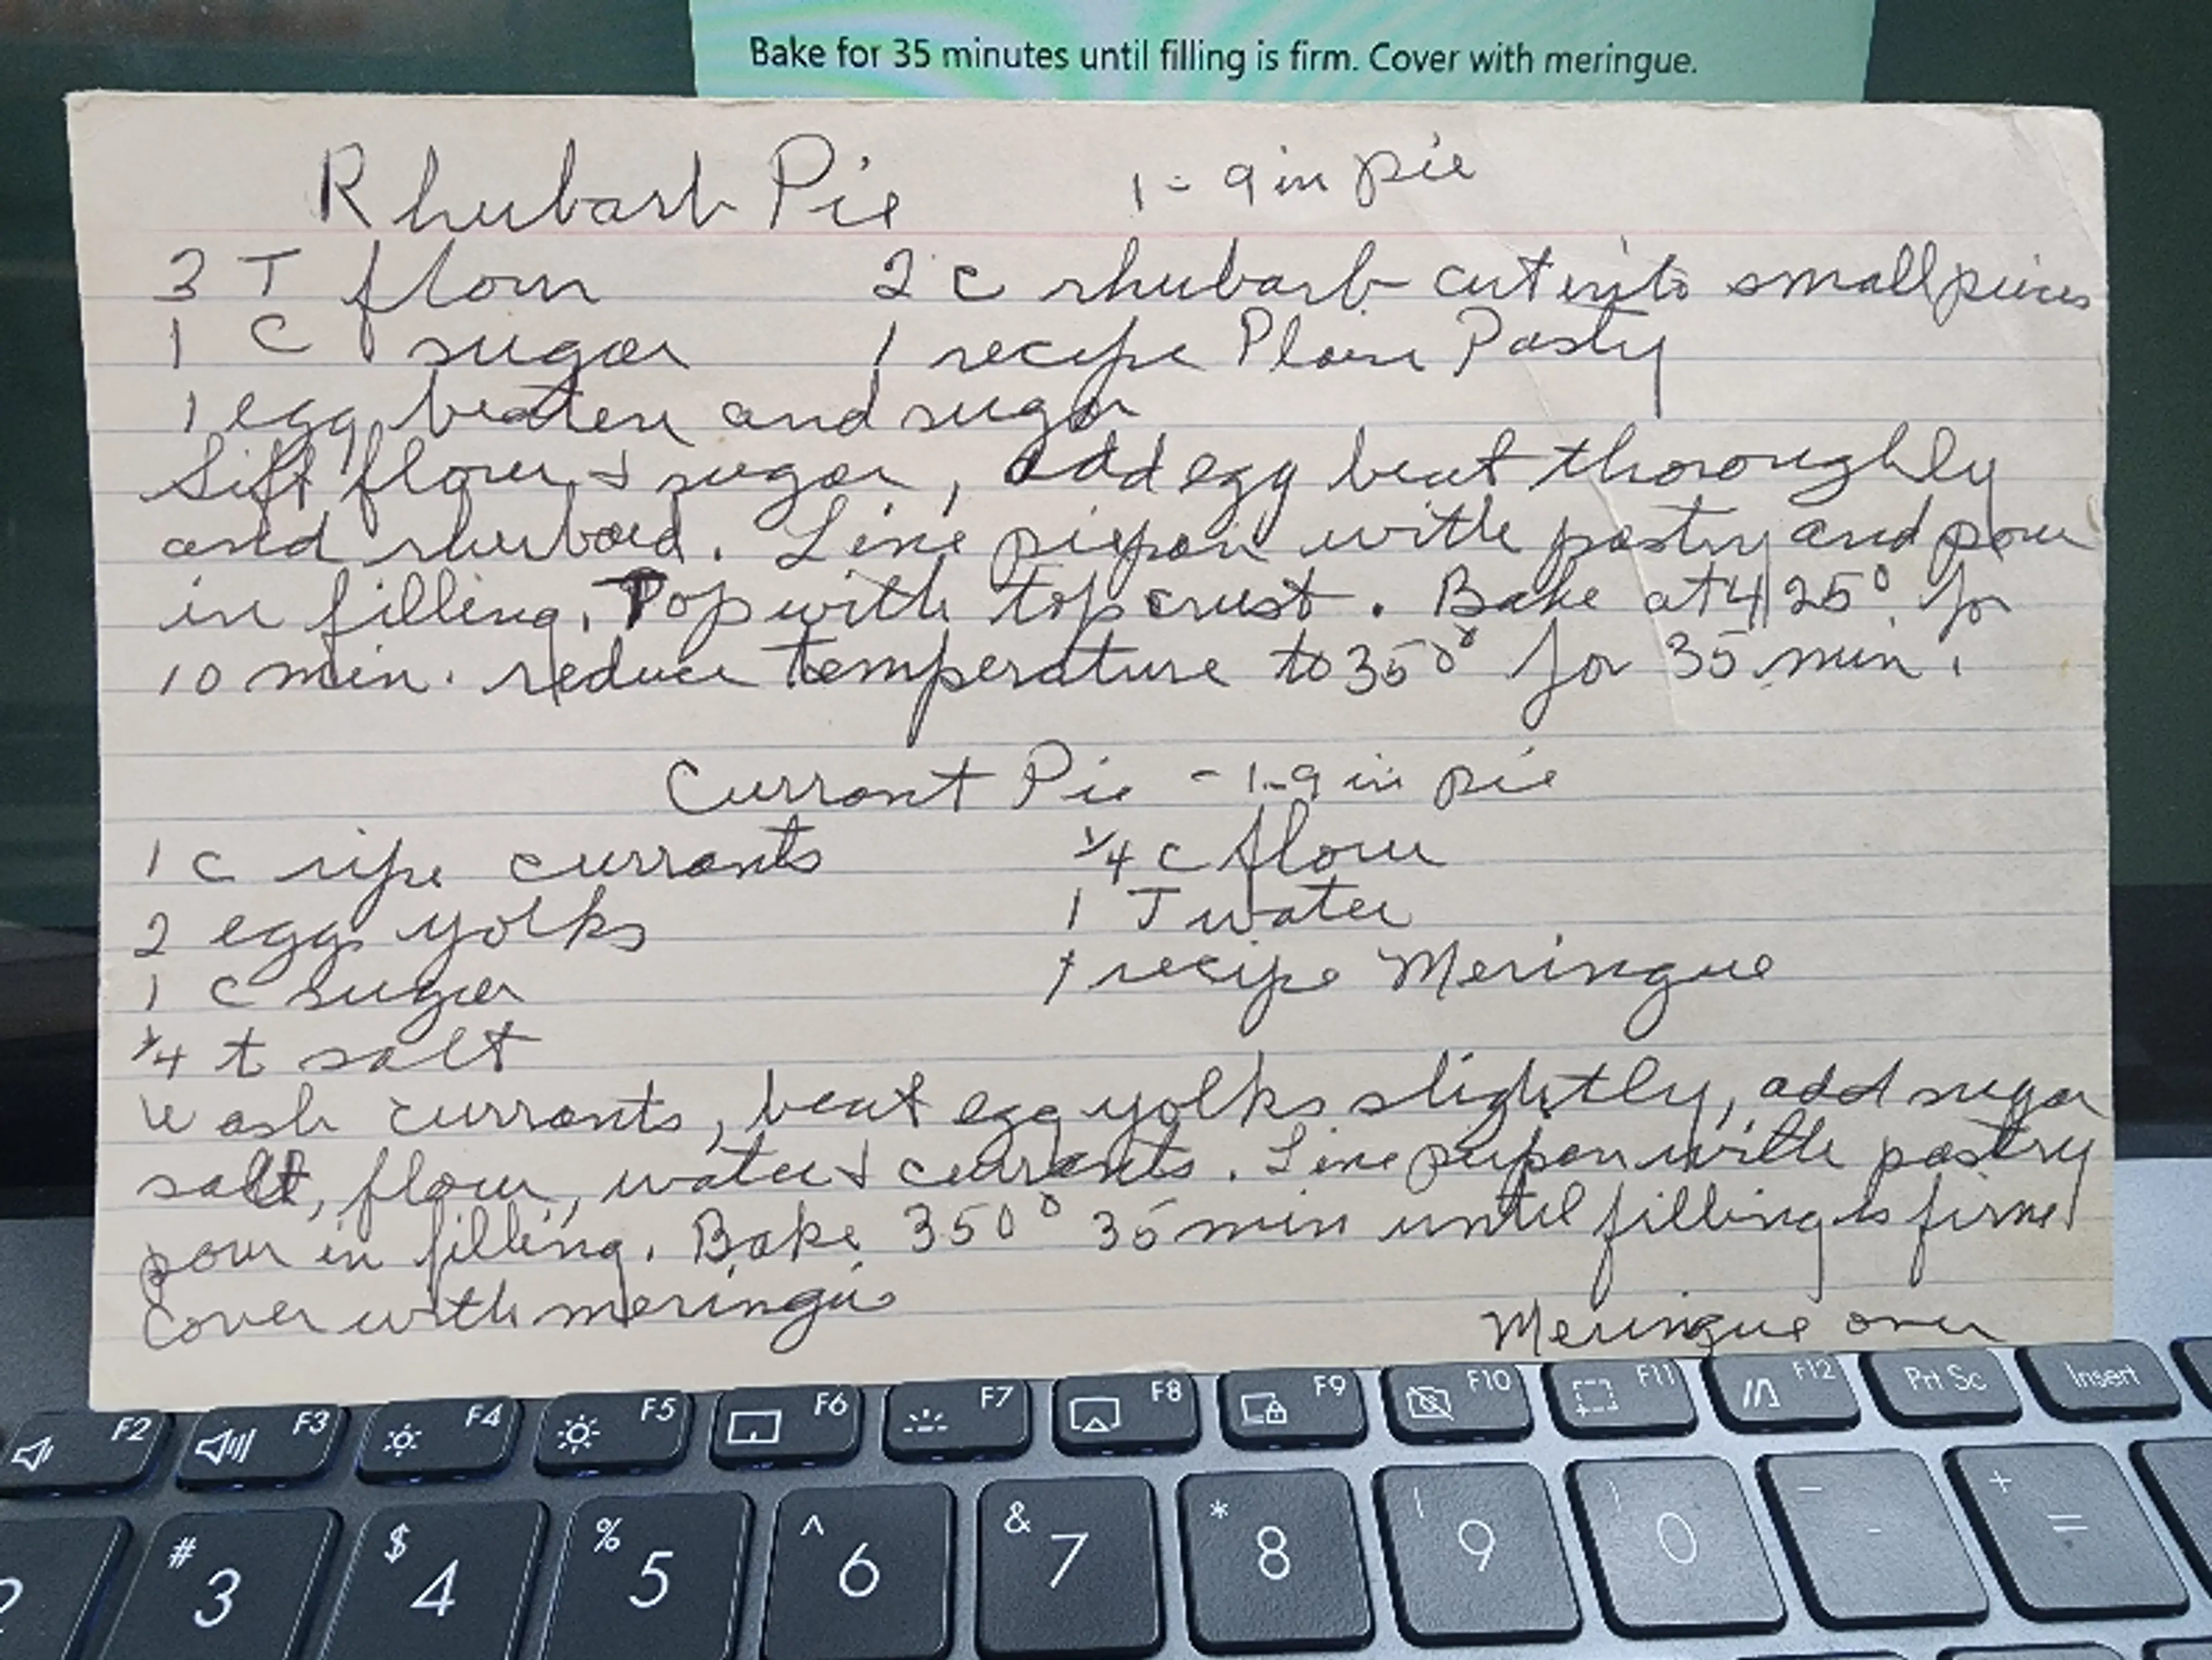 Bake for 35 minutes until filling is firm. Cover with meringue.
Rhubarb Pie 1 - 9 in pie
3 T flour 2 c rhubarb cut into small pieces
1 C sugar 1 recipe Plain Pasty
1 egg beaten and sugar
Sift flour & sugar, add egg beat thoroughly
and rhubard. Line piepan with pastry and pour
in filling. Top with top crust. Bake at 425° for
10 min. reduce temperature to 350° for 35 min.
Currant Pie - 1-9 in pie
1 c ripe currants 1/4 c flour
2 egg yolks 1 T water
1 c sugar 1 recipe Meringue
1/4 t salt
Wash currants, beat egg yolks slightly, add sugar
salt, flour, water & currants. Line piepan with pastry
pour in filling. Bake 350° 35 min until filling is firm
Cover with meringue
Meringue over
F2 F3 F4 F5 F6 F7 F8 F9 F10 F11 F12 Prt Sc Insert
2 # 3 $ 4 % 5 ^ 6 & 7 * 8 ( 9 ) 0 _ - + =